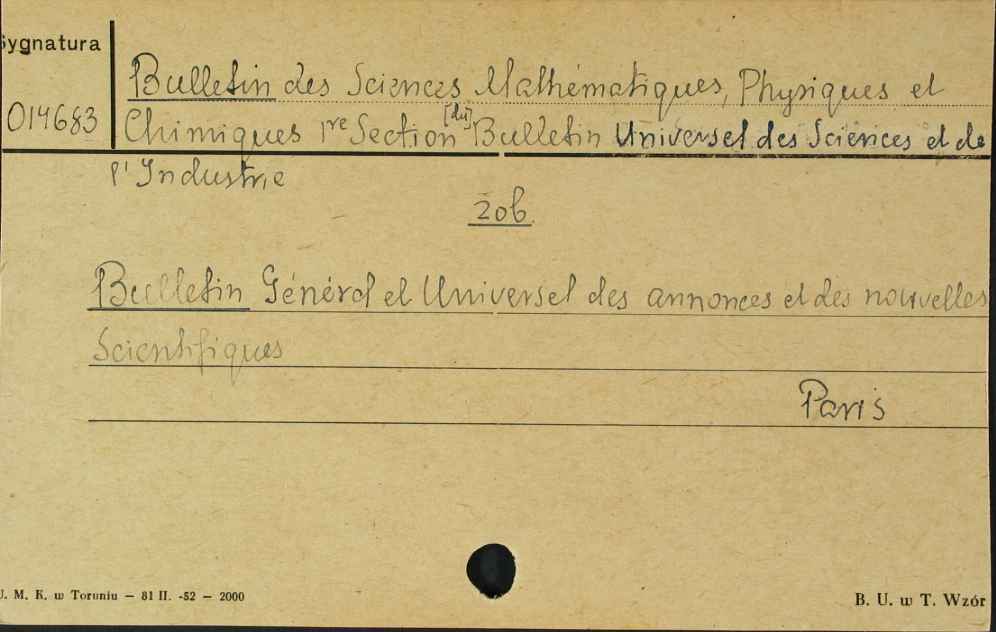 Sygnatura
014683
Bulletin des Sciences Mathématiques, Physiques et
Chimiques 1re Section [du] Bulletin Universel des Sciences et de
l'Industrie
zob.
Bulletin Général et Universel des annonces et des nouvelles
Scientifiques
Paris
U. M. K. w Toruniu — 81 II. -52 — 2000
B. U. w T. Wzór